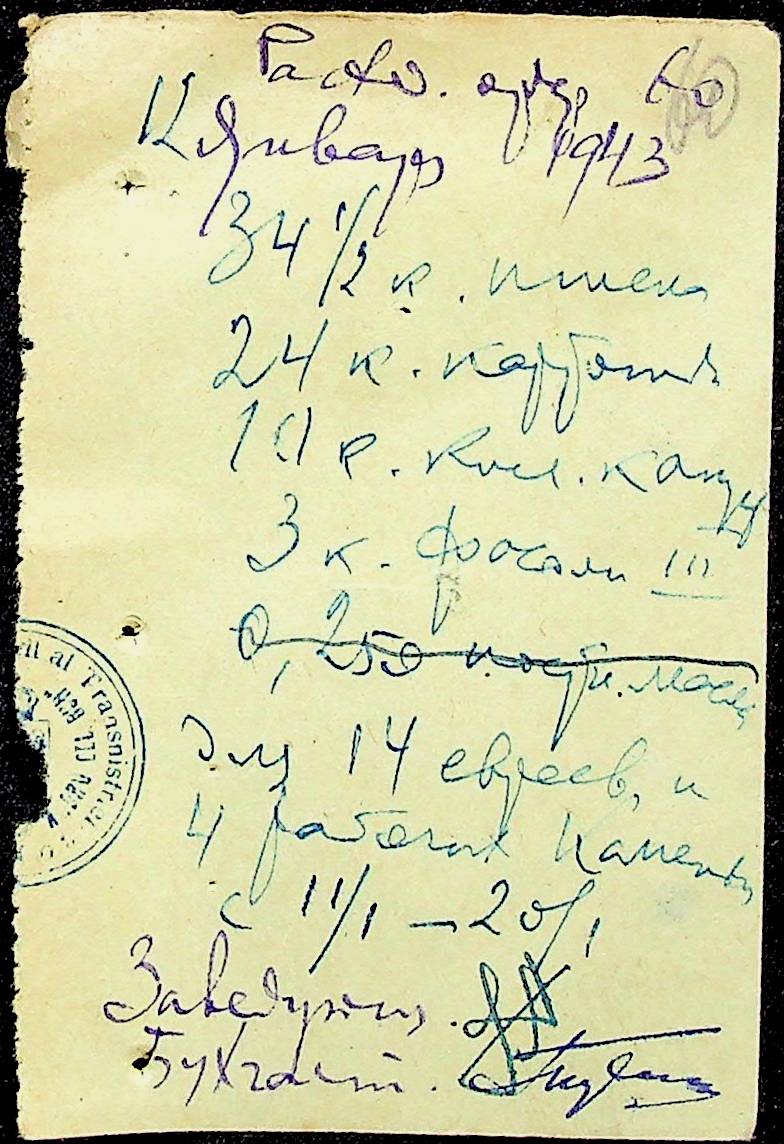 Расхо. ордер
12 Январь 1943
34 1/2 к. пшена
24 к. картошки
10 к. кисл. капуст
3 к. фосоли
0,250 масла
для 14 евреев, и
4 рабочих
с 11/1 – 20/1
Заведующий.
Бухгалт.
al Transnistriei